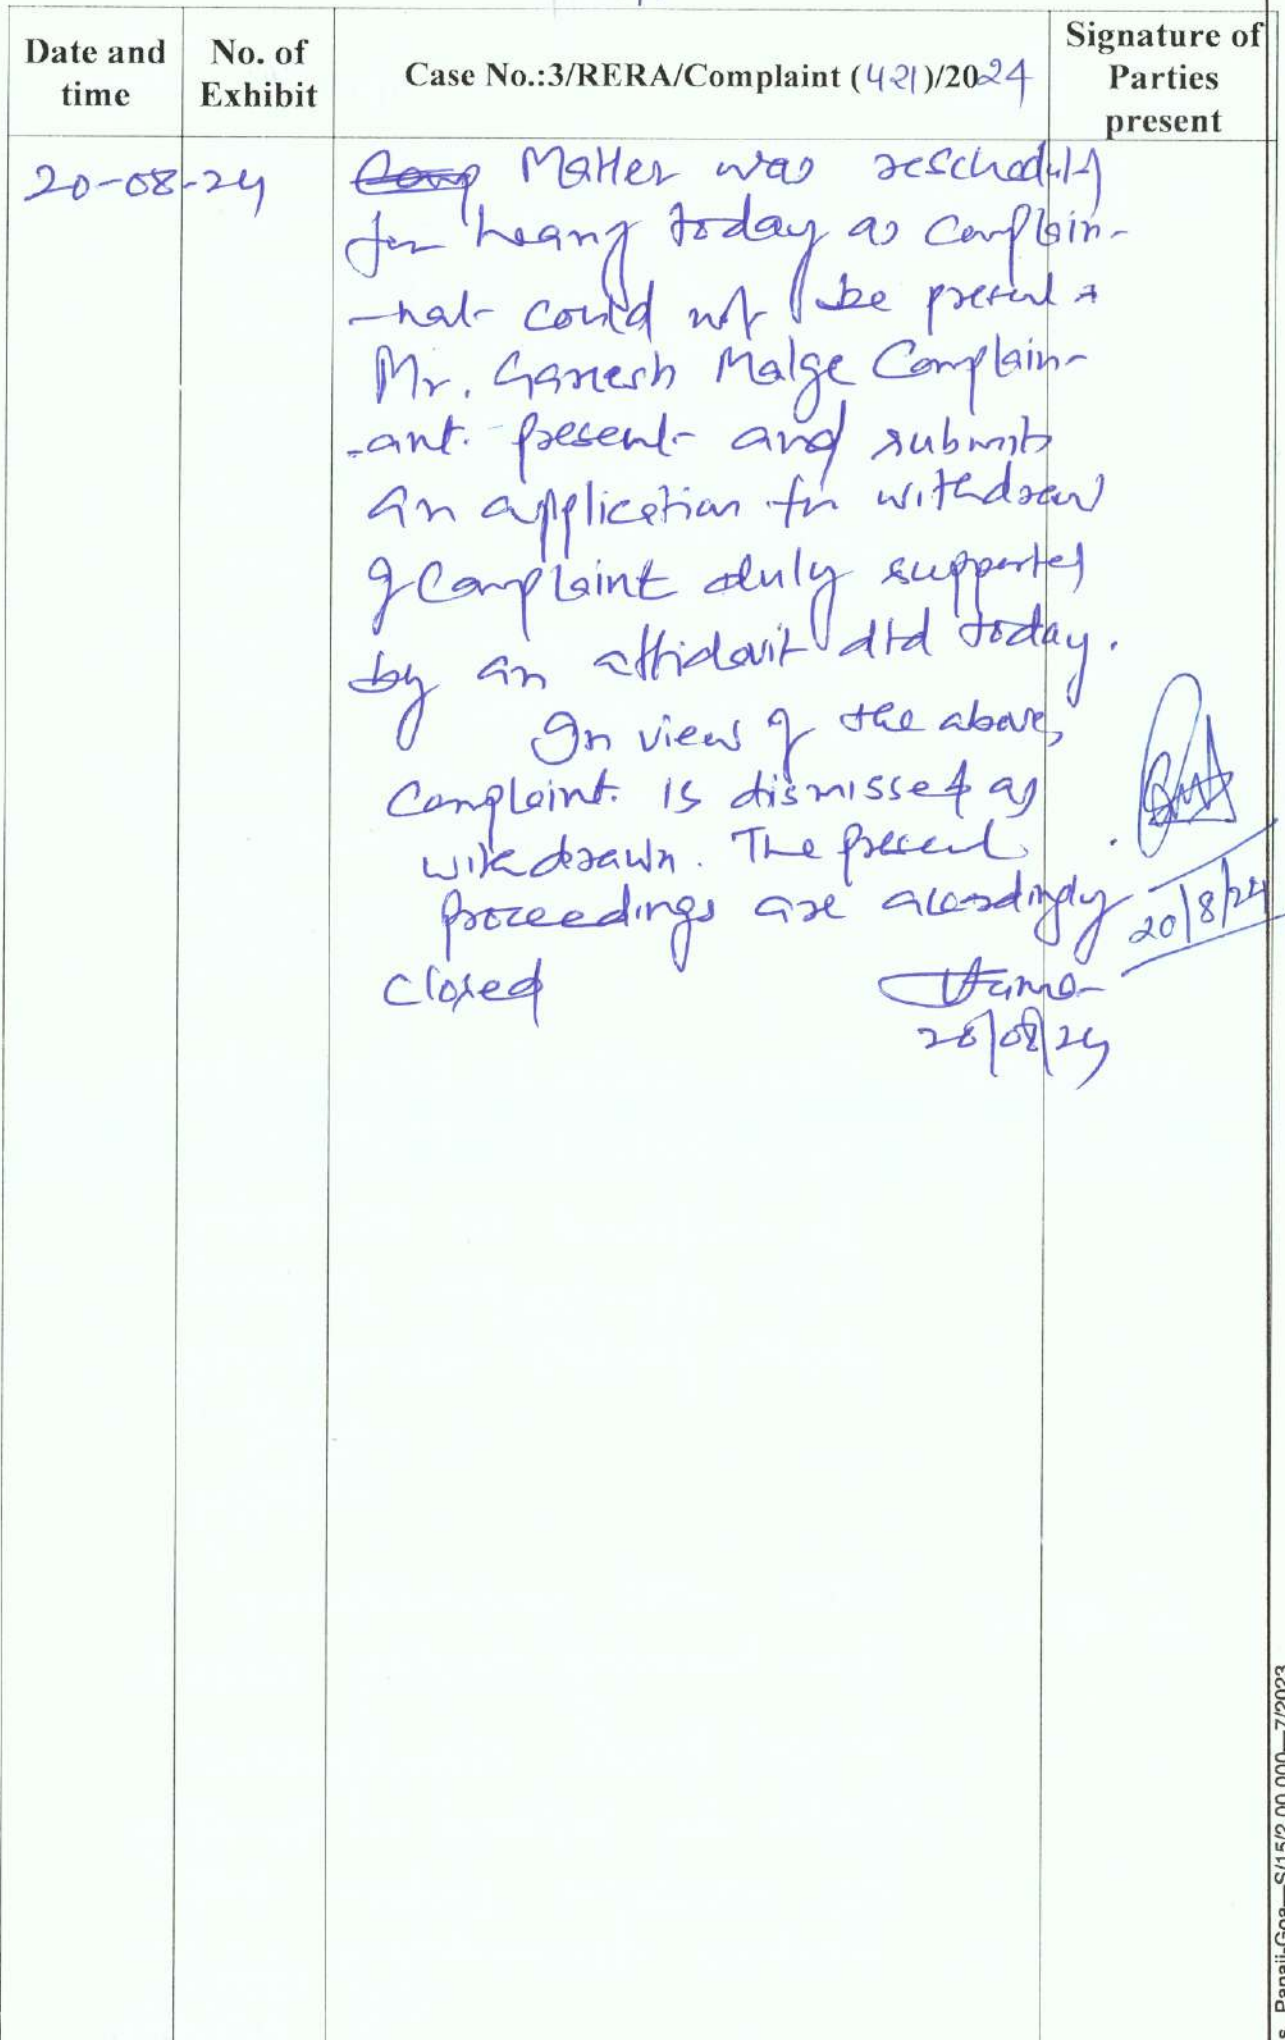 Date and time
No. of Exhibit
Case No.:3/RERA/Complaint (421)/2024
Signature of Parties present
20-08-24
Matter was rescheduled
for hearing today as Complain-
-nat could not be present
Mr. Ganesh Malge Complain-
-ant. present and submits
an application for withdrawl
of Complaint duly supported
by an affidavit dtd today.
In view of the above,
Complaint. is dismissed as
withdrawn. The present
proceedings are accordingly
closed
20/8/24
20/08/24
Panaji-Goa—S/15/2,00,000—7/2023